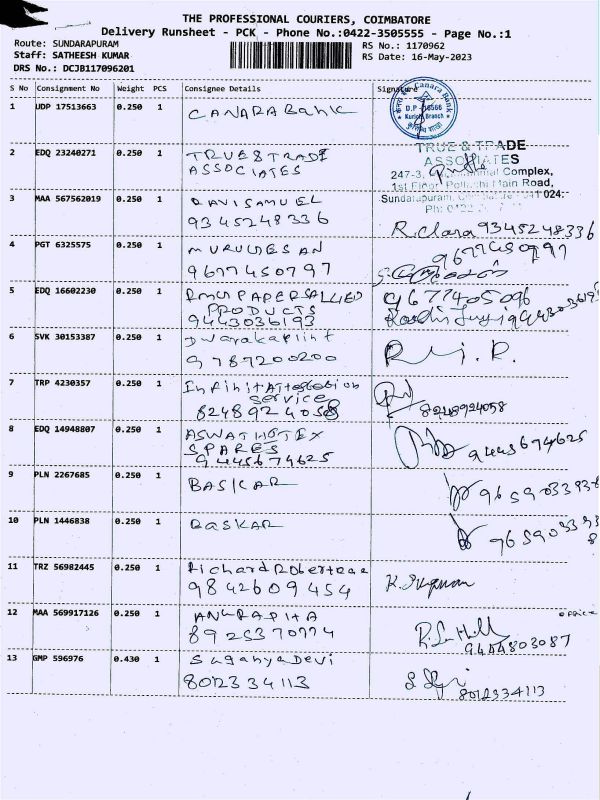 THE PROFESSIONAL COURIERS, COIMBATORE
Delivery Runsheet - PCK - Phone No.:0422-3505555 - Page No.:1
Route: SUNDARAPURAM
RS No.: 1170962
Staff: SATHEESH KUMAR
RS Date: 16-May-2023
DRS No.: DCJB117096201
S No Consignment No Weight PCS Consignee Details Signature
1 UDP 17513663 0.250 1 CANARA Bank
Canara Bank
D.P
Kurichi Branch
2 EDQ 23240271 0.250 1 TRUE & TRADE
ASSOCIATES
TRUE & TRADE
ASSOCIATES
247-3, Complex,
1st Floor, Pollachi Main Road,
Sundarapuram, 641 024.
Ph: 0422
3 MAA 567562019 0.250 1 DAVISAMUEL
9345248336
R. Clara 9345248336
4 PGT 6325575 0.250 1 MURUGESAN
9677450797
9677450797
5 EDQ 16602230 0.250 1 PAPERS ALLIED
PRODUCTS
9443036193
9677405096
6 SVK 30153387 0.250 1 Dwarakaprint
9787200200
7 TRP 4230357 0.250 1 Infinit Attestation
Service
8248924058
8248924058
8 EDQ 14948807 0.250 1 ASWATHOTEX
SPARES
9445674625
9445674625
9 PLN 2267685 0.250 1 BASKAR
10 PLN 1446838 0.250 1 BASKAR
11 TRZ 56982445 0.250 1 Richard
9842609454
12 MAA 569917126 0.250 1
office
9444803087
13 GMP 596976 0.430 1 Suganya Devi
8012334113
8012334113